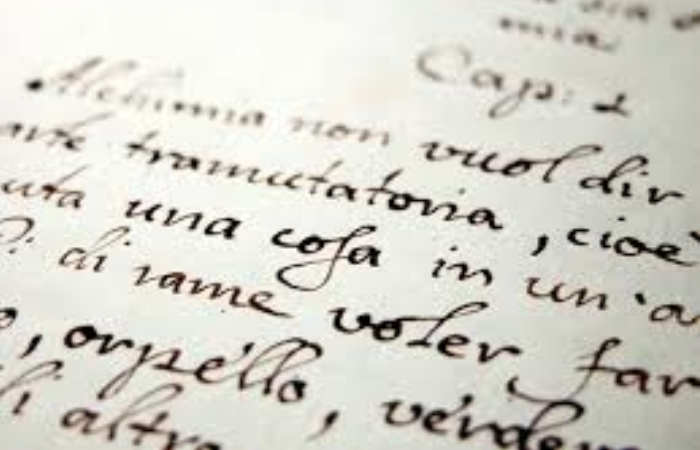 mia.
Cap: 1
Alchimia non vuol dir
arte tramutatoria, cioè
uta una coſa in un'a
di rame voler far
, orpello, verde
altro